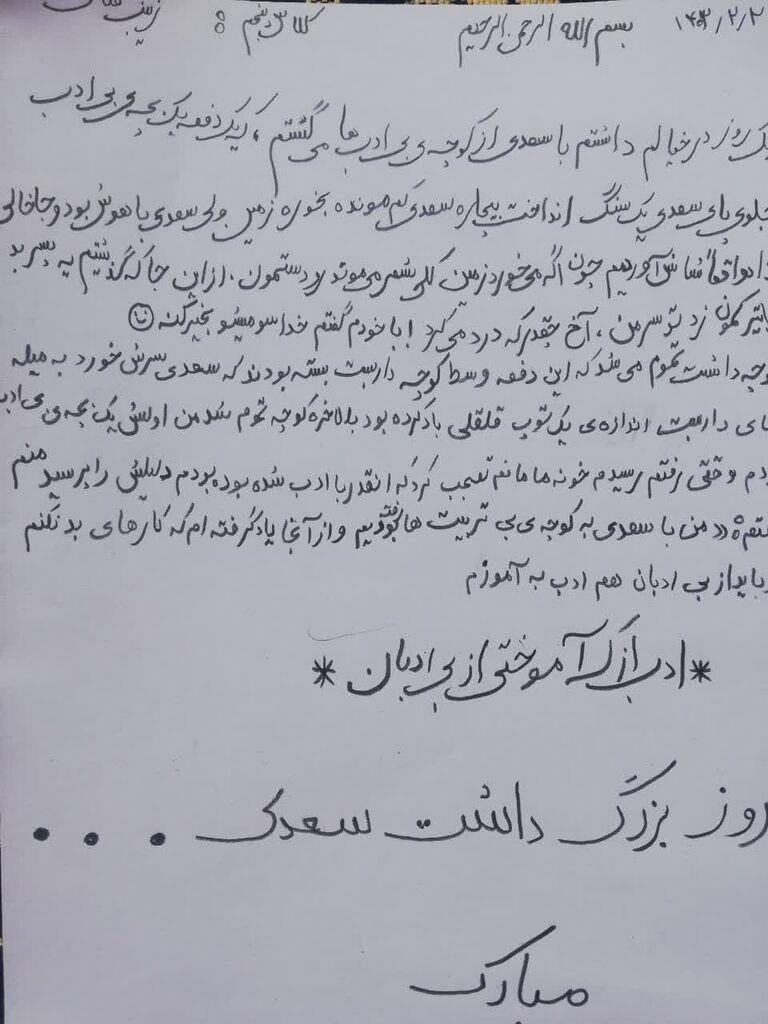 ۱۴۰۳/۲/۲ بسم الله الرحمن الرحیم کلاس پنجم زینب
یک روز در خیالم داشتم با سعدی از کوچه ی بی ادب ها می گشتم ، که یک دفعه یک بچه ی بی ادب
جلوی پای سعدی یک سنگ انداخت بیچاره سعدی کم مونده بخوره زمین ولی سعدی باهوش بود و جاخالی
واقعاً شانس آوردیم چون اگه می خورد زمین کلی شعر می موند رو دستمون . از این جا که گذشتیم یه پسر بد
با تیرکمون زد تو سر من ، آخ چقدر که درد می کرد ! با خودم گفتم خدا سومیشو بخیر کنه ☺
کوچه داشت تموم می شد که این دفعه وسط کوچه داربست بسته بودند که سعدی سرش خورد به میله
های داربست اندازه ی یک توپ قلقلی باد کرده بود بالاخره کوچه تموم شد من اولش یک بچه ی بی ادب
بودم وقتی رفتم رسیدم خونه مامانم تعجب کرد که انقدر با ادب شده بوده بودم دلیلش را پرسید منم
گفتم: «من با سعدی به کوچه ی بی تربیت ها رفتیم و از آنجا یاد گرفته ام که کارهای بد نکنم
و باید از بی ادبان هم ادب به آموزم
* ادب از که آموختی از بی ادبان *
روز بزرگ داشت سعدی . . .
مبارک